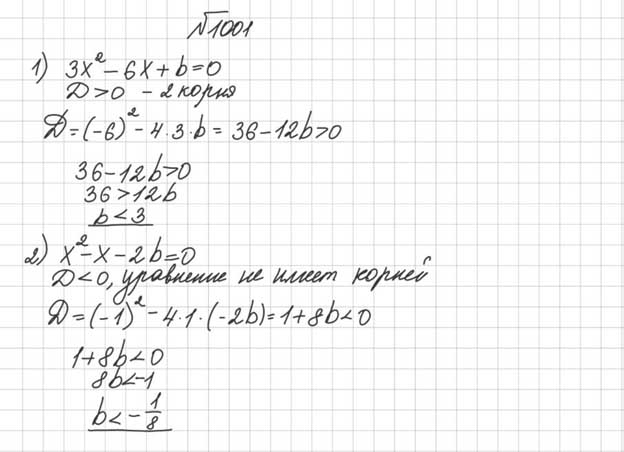 №1001
1) 3x² - 6x + b = 0
D > 0 - 2 корня
D = (-6)² - 4·3·b = 36 - 12b > 0
36 - 12b > 0
36 > 12b
b < 3
2) x² - x - 2b = 0
D < 0, уравнение не имеет корней
D = (-1)² - 4·1·(-2b) = 1 + 8b < 0
1 + 8b < 0
8b < -1
b < -1/8